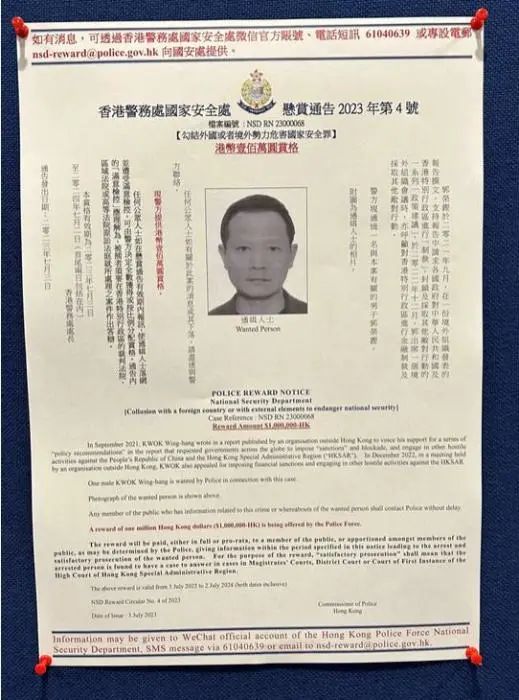 如有消息，可透過香港警務處國家安全處微信官方賬號、電話短訊 61040639 或專設電郵
nsd-reward@police.gov.hk 向國安處提供。
香港警務處國家安全處 懸賞通告 2023 年第 4 號
檔案編號：NSD RN 23000068
【勾結外國或者境外勢力危害國家安全罪】
港幣壹佰萬圓賞格
郭榮鏗於二〇二一年九月，在一份境外組織發表的
報告撰文，支持報告中請求各國政府對中華人民共和國及
香港特別行政區進行「制裁」、封鎖及採取其他敵對行動的
一系列「政策建議」。於二〇二二年十二月，郭出席一個境
外組織會議時，亦呼籲對香港特別行政區進行金融制裁及
採取其他敵對行動。
警方現通緝一名與本案有關的男子郭榮鏗。
附圖為通緝人士的相片。
通緝人士
Wanted Person
任何公眾人士如有關於此案的消息或其下落，請從速與警
方聯絡。
現警方提供港幣壹佰萬圓賞格。
任何公眾人士如在懸賞通告有效期內報訊，使通緝人士落網
並遭受滿意檢控，可由警方決定全數獲得或按比例分配賞格。通告內
的「滿意檢控」應理解為，被捕者須要在香港特別行政區的裁判法院、
區域法院或高等法院原訟法庭就所處理之案件作出答辯。
本賞格有效期為二〇二三年七月三日
至二〇二四年七月二日（首尾兩日包括在內）。
香港警務處處長
通告發出日期：二〇二三年七月三日
POLICE REWARD NOTICE
National Security Department
[Collusion with a foreign country or with external elements to endanger national security]
Case Reference : NSD RN 23000068
Reward Amount $1,000,000-HK
In September 2021, KWOK Wing-hang wrote in a report published by an organisation outside Hong Kong to voice his support for a series of
"policy recommendations" in the report that requested governments across the globe to impose "sanctions" and blockade, and engage in other hostile
activities against the People's Republic of China and the Hong Kong Special Administrative Region ("HKSAR"). In December 2022, in a meeting held
by an organisation outside Hong Kong, KWOK also appealed for imposing financial sanctions and engaging in other hostile activities against the HKSAR.
One male KWOK Wing-hang is wanted by Police in connection with this case.
Photograph of the wanted person is shown above.
Any member of the public who has information related to this crime or whereabouts of the wanted person shall contact Police without delay.
A reward of one million Hong Kong dollars ($1,000,000-HK) is being offered by the Police Force.
The reward will be paid, either in full or pro-rata, to a member of the public, or apportioned amongst members of the
public, as may be determined by the Police, giving information within the period specified in this notice leading to the arrest and
satisfactory prosecution of the wanted person. For the purpose of the reward, "satisfactory prosecution" shall mean that the
arrested person is found to have a case to answer in cases in Magistrates' Courts, District Court or Court of First Instance of the
High Court of Hong Kong Special Administrative Region.
The above reward is valid from 3 July 2023 to 2 July 2024 (both dates inclusive)
NSD Reward Circular No. 4 of 2023
Commissioner of Police
Hong Kong
Date of Issue : 3 July 2023
Information may be given to WeChat official account of the Hong Kong Police Force National
Security Department, SMS message via 61040639 or email to nsd-reward@police.gov.hk.